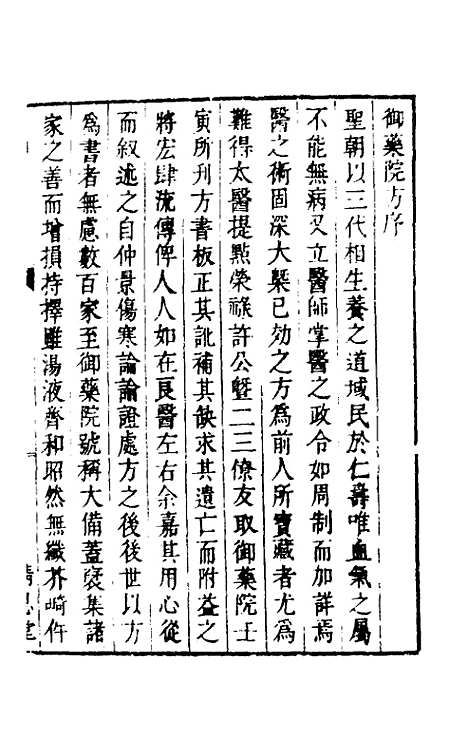 御藥院方序
聖朝以三代相生養之道域民於仁壽唯血氣之屬
不能無病又立醫師掌醫之政令如周制而加詳焉
醫之術固深大槩已効之方為前人所寶藏者尤為
難得太醫提點榮祿許公曁二三僚友取御藥院壬
寅所刋方書板正其訛補其缺求其遺亡而附益之
將宏肆流傳俾人人如在良醫左右余嘉其用心從
而叙述之自仲景傷寒論論證處方之後後世以方
為書者無慮數百家至御藥院號稱大備蓋裒集諸
家之善而增損持擇雖湯液齊和昭然無纖芥﨑仵